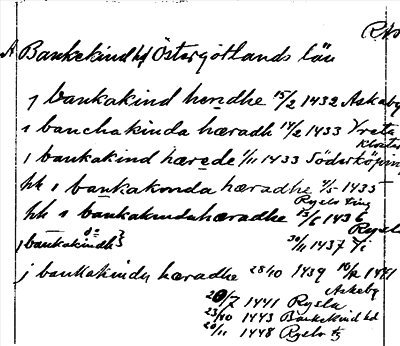 A Bankekind hd Östergötlands län
j bankakind heredhe 15/2 1432 Askeby
i banchakinda hæradh 14/2 1433 Vreta
Kloster
j bankakind hærede 1/11 1433 Söderköping
hk i bankakonda hæradhe 4/5 1435
Rysla ting
hh i bankakindahæradhe 15/6 1436
Rysla
j bankakindh 30/11 1437
j bankakindu hæradhe 28/10 1439 10/12 1441
Askeby
20/7 1441 Rysla
23/10 1443 Bankekind hd
20/11 1448 Rysla